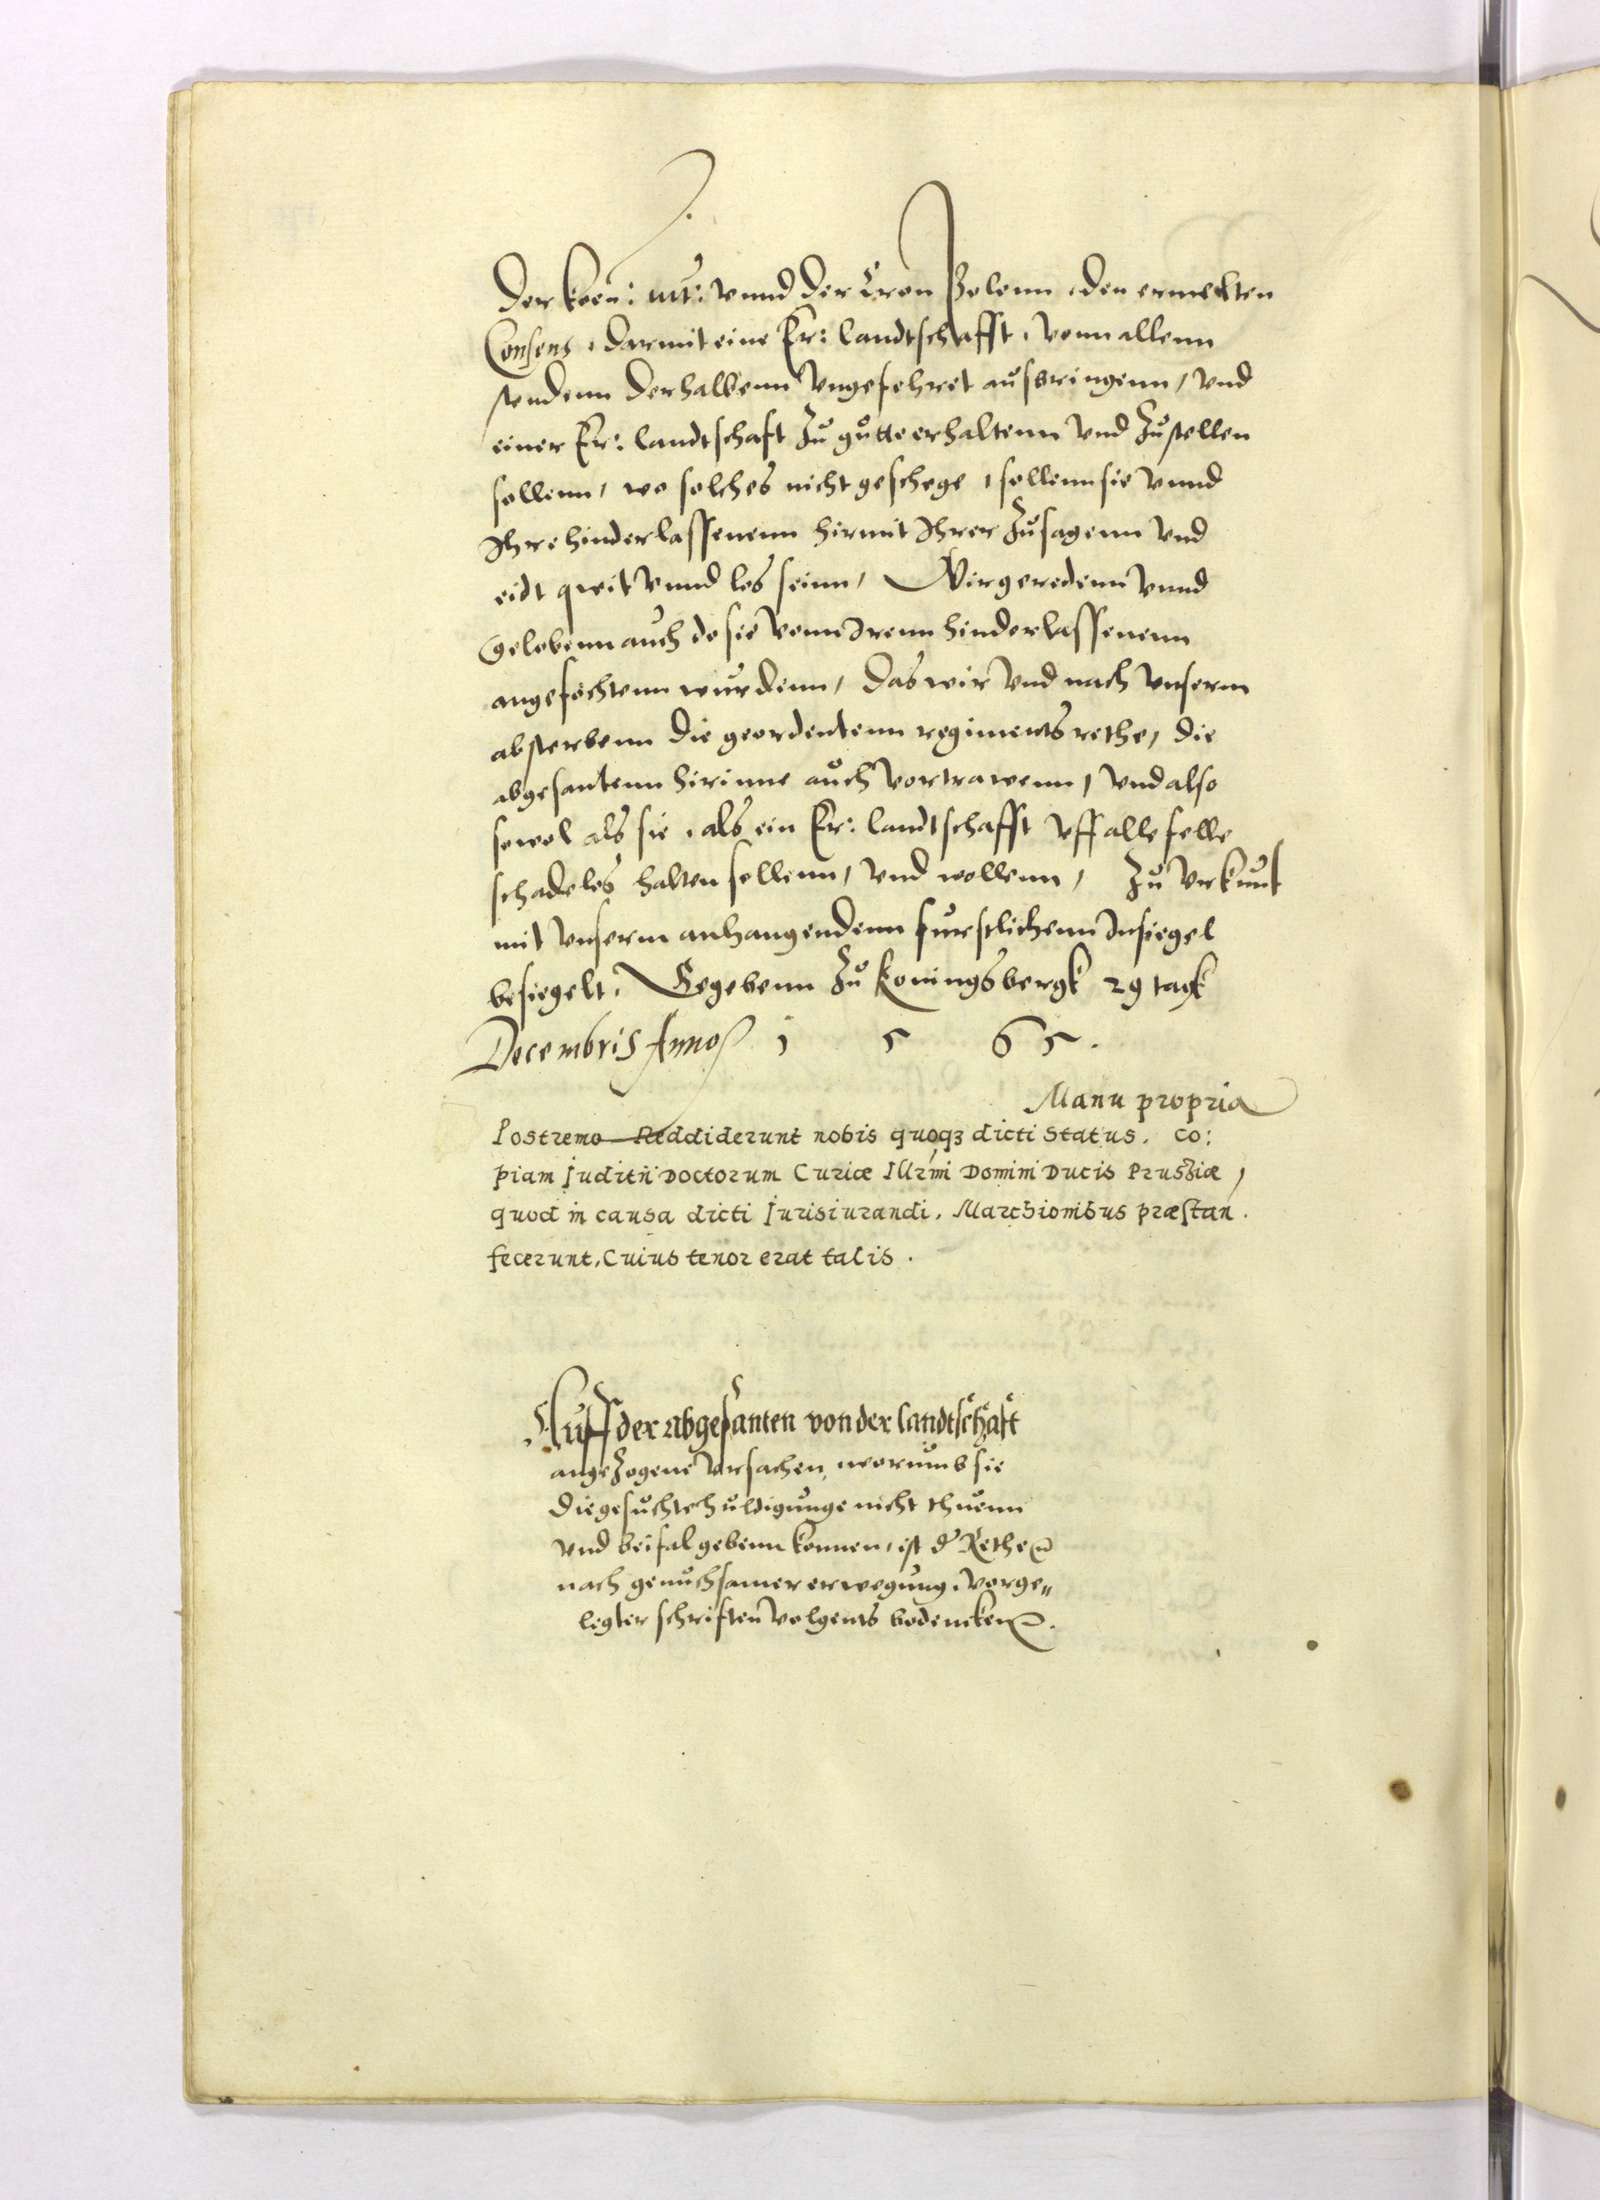 Der koen: mt: vnnd der Cron Polenn, den ermelten
Consens, darmit eine Er: landtschafft, vonn allenn
stendenn derhalbenn vngefehret außbringenn, vnd
einer Er: landtschaft zu gutte erhaltenn vnd zustellen
sollenn, wo solches nicht geschege, sollenn sie vnnd
Ihre hinderlassenenn hirmit Ihrer zusagenn vnd
eidt qweit vnnd los seinn, Wir geredenn vnnd
gelobenn auch do sie vonn Irenn hinderlassenenn
angefochtenn wurdenn, das wir vnd nach vnserm
absterbenn die geordentenn regiments rethe, die
abgesantenn hirinne auch vortrawenn, vnd also
sowol als sie, als ein Er: landtschafft vff alle felle
schadelos halten sollenn, vnd wollenn, Zu vrkunt
mit vnserm anhangendenn furstlichenn Insiegel
besiegelt, Gegebenn zu Koningsbergk 29 tagk
Decembris Anno 1 5 6 5.
Manu propria
Postremo Reddiderunt nobis quoqȝ dicti Status. Co:
piam Juditii Doctorum Curiæ Illrmi Domini Ducis Prussiæ,
quod in causa dicti Jurisiurandi, Marchionibus præstan.
fecerunt, Cuius tenor erat talis.
Auff der abgesanten von der landtschaft
angezogene vrsachen, worumb sie
die gesuchte huldigunge nicht thuenn
vnd beifal gebenn konnen, ist d' Rethe
nach genuchsamer erwegung, vorge„
legter schriften volgents bedencken.